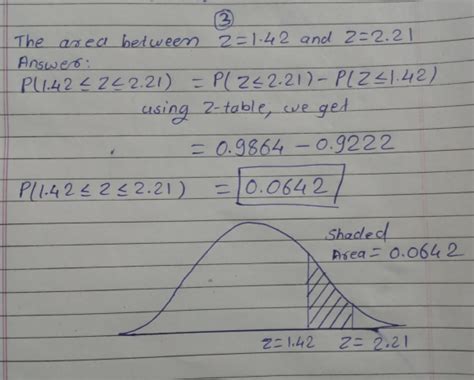 ③
The area between Z=1.42 and Z=2.21
Answer:
P(1.42 ≤ Z ≤ 2.21) = P(Z ≤ 2.21) - P(Z ≤ 1.42)
using Z-table, we get
= 0.9864 - 0.9222
P(1.42 ≤ Z ≤ 2.21) = 0.0642
Shaded
Area = 0.0642
Z=1.42 Z= 2.21